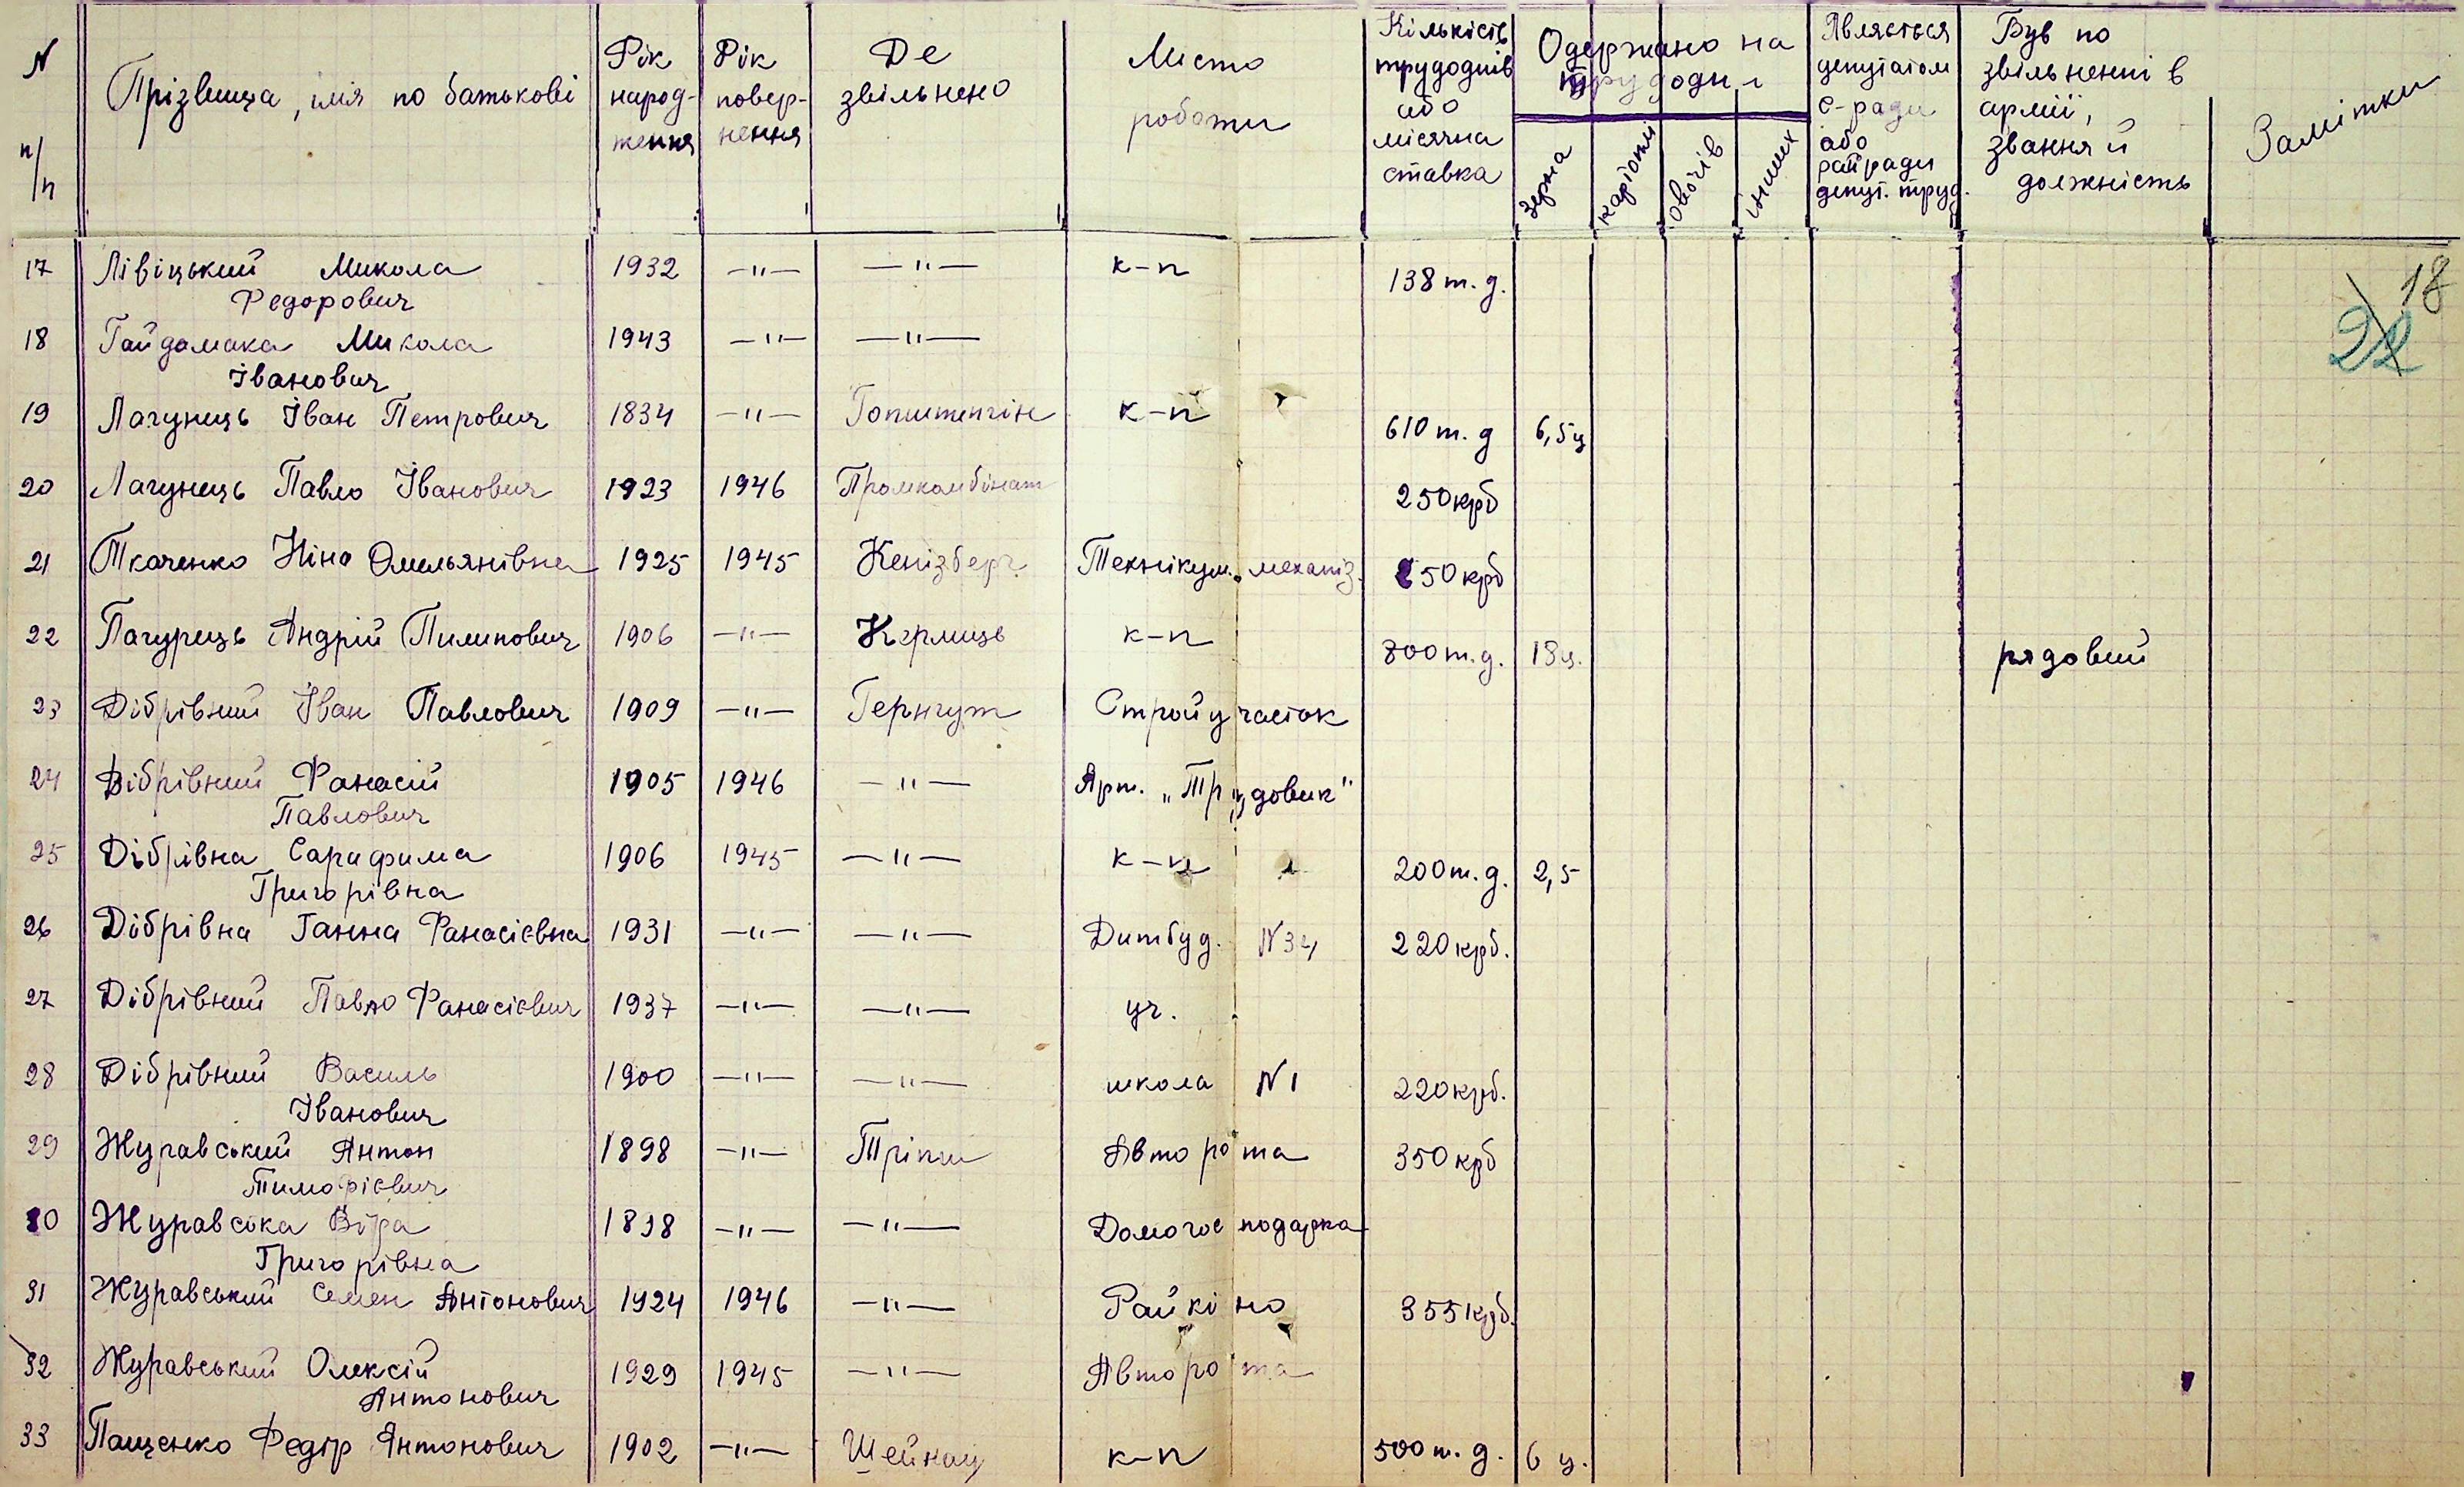 N п/п | Прізвища, імя по батькові | Рік народ-ження | Рік повер-нення | Де звільнено | Місто роботи | Кількість трудоднів або місячна ставка | Одержано на трудодні | Являється депутатом с-ради або райради депут. труд. | Був по звільненні в армії, звання й должність | Замітки
зерна | картоплі | овочів | інших
18
22
17 Лівіцький Микола 1932 —"— —"— к-п 138 т.д.
Федорович
18 Гайдамака Микола 1943 —"— —"—
Іванович
19 Лагунець Іван Петрович 1834 —"— Гопштенгін к-п 610 т.д 6,5ц
20 Лагунець Павло Іванович 1923 1946 Промкомбінат 250крб
21 Ткаченко Ніна Омельянівна 1925 1945 Кенізберг Технікум. механіз. 250крб
22 Пагурець Андрій Пилипович 1906 —"— Кермиць к-п 800 т.д. 13ц. рядовий
23 Дібрівний Іван Павлович 1909 —"— Гернгут Стройучасток
24 Дібрівний Фанасій 1905 1946 —"— Арт. „Трудовик"
Павлович
25 Дібрівна Сарафима 1906 1945 —"— к-п 200т.д. 2,5
Григорівна
26 Дібрівна Ганна Фанасієвна 1931 —"— —"— Дитбуд. N34 220крб.
27 Дібрівний Павло Фанасієвич 1937 —"— —"— уч.
28 Дібрівний Василь 1900 —"— —"— школа N1 220крб.
Іванович
29 Журавський Антон 1898 —"— Тріпш Авто рота 350крб
Тимофієвич
30 Журавська Віра 1898 —"— —"— Домогосподарка
Григорівна
31 Журавський Семен Антонович 1924 1946 —"— Райкіно 355крб.
32 Журавський Олексій 1929 1945 —"— Авторота
Антонович
33 Пащенко Федір Антонович 1902 —"— Шейнац к-п 500 т.д. 6 ц.